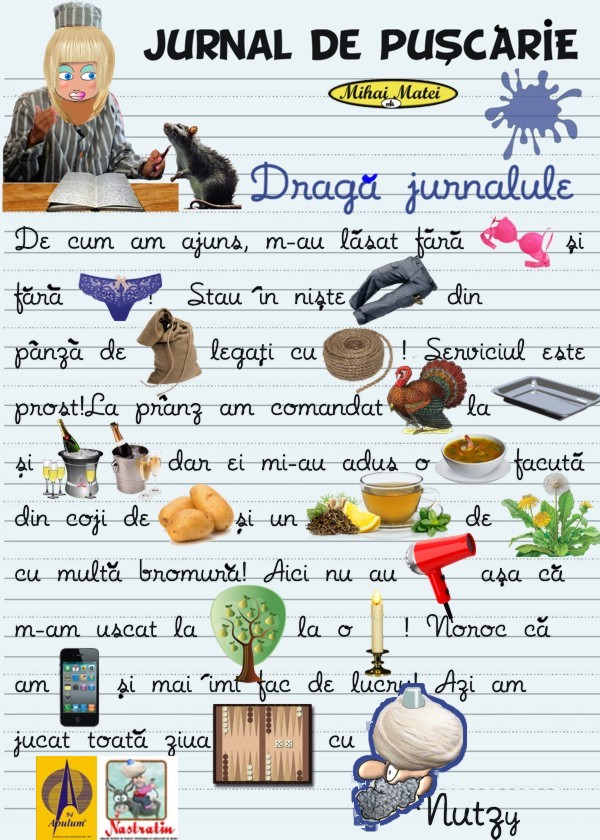 JURNAL DE PUȘCĂRIE
Mihai Matei
ok
Dragă jurnalule
De cum am ajuns, m-au lăsat fără și
fără ! Stau în niște din
pânză de legați cu ! Serviciul este
prost!La prânz am comandat la
și dar ei mi-au adus o facută
din coji de și un de
cu multă bromură! Aici nu au așa că
m-am uscat la la o ! Noroc că
am și mai îmi fac de lucru! Azi am
jucat toată ziua cu
Nutzy
94
Apulum
Nastratin